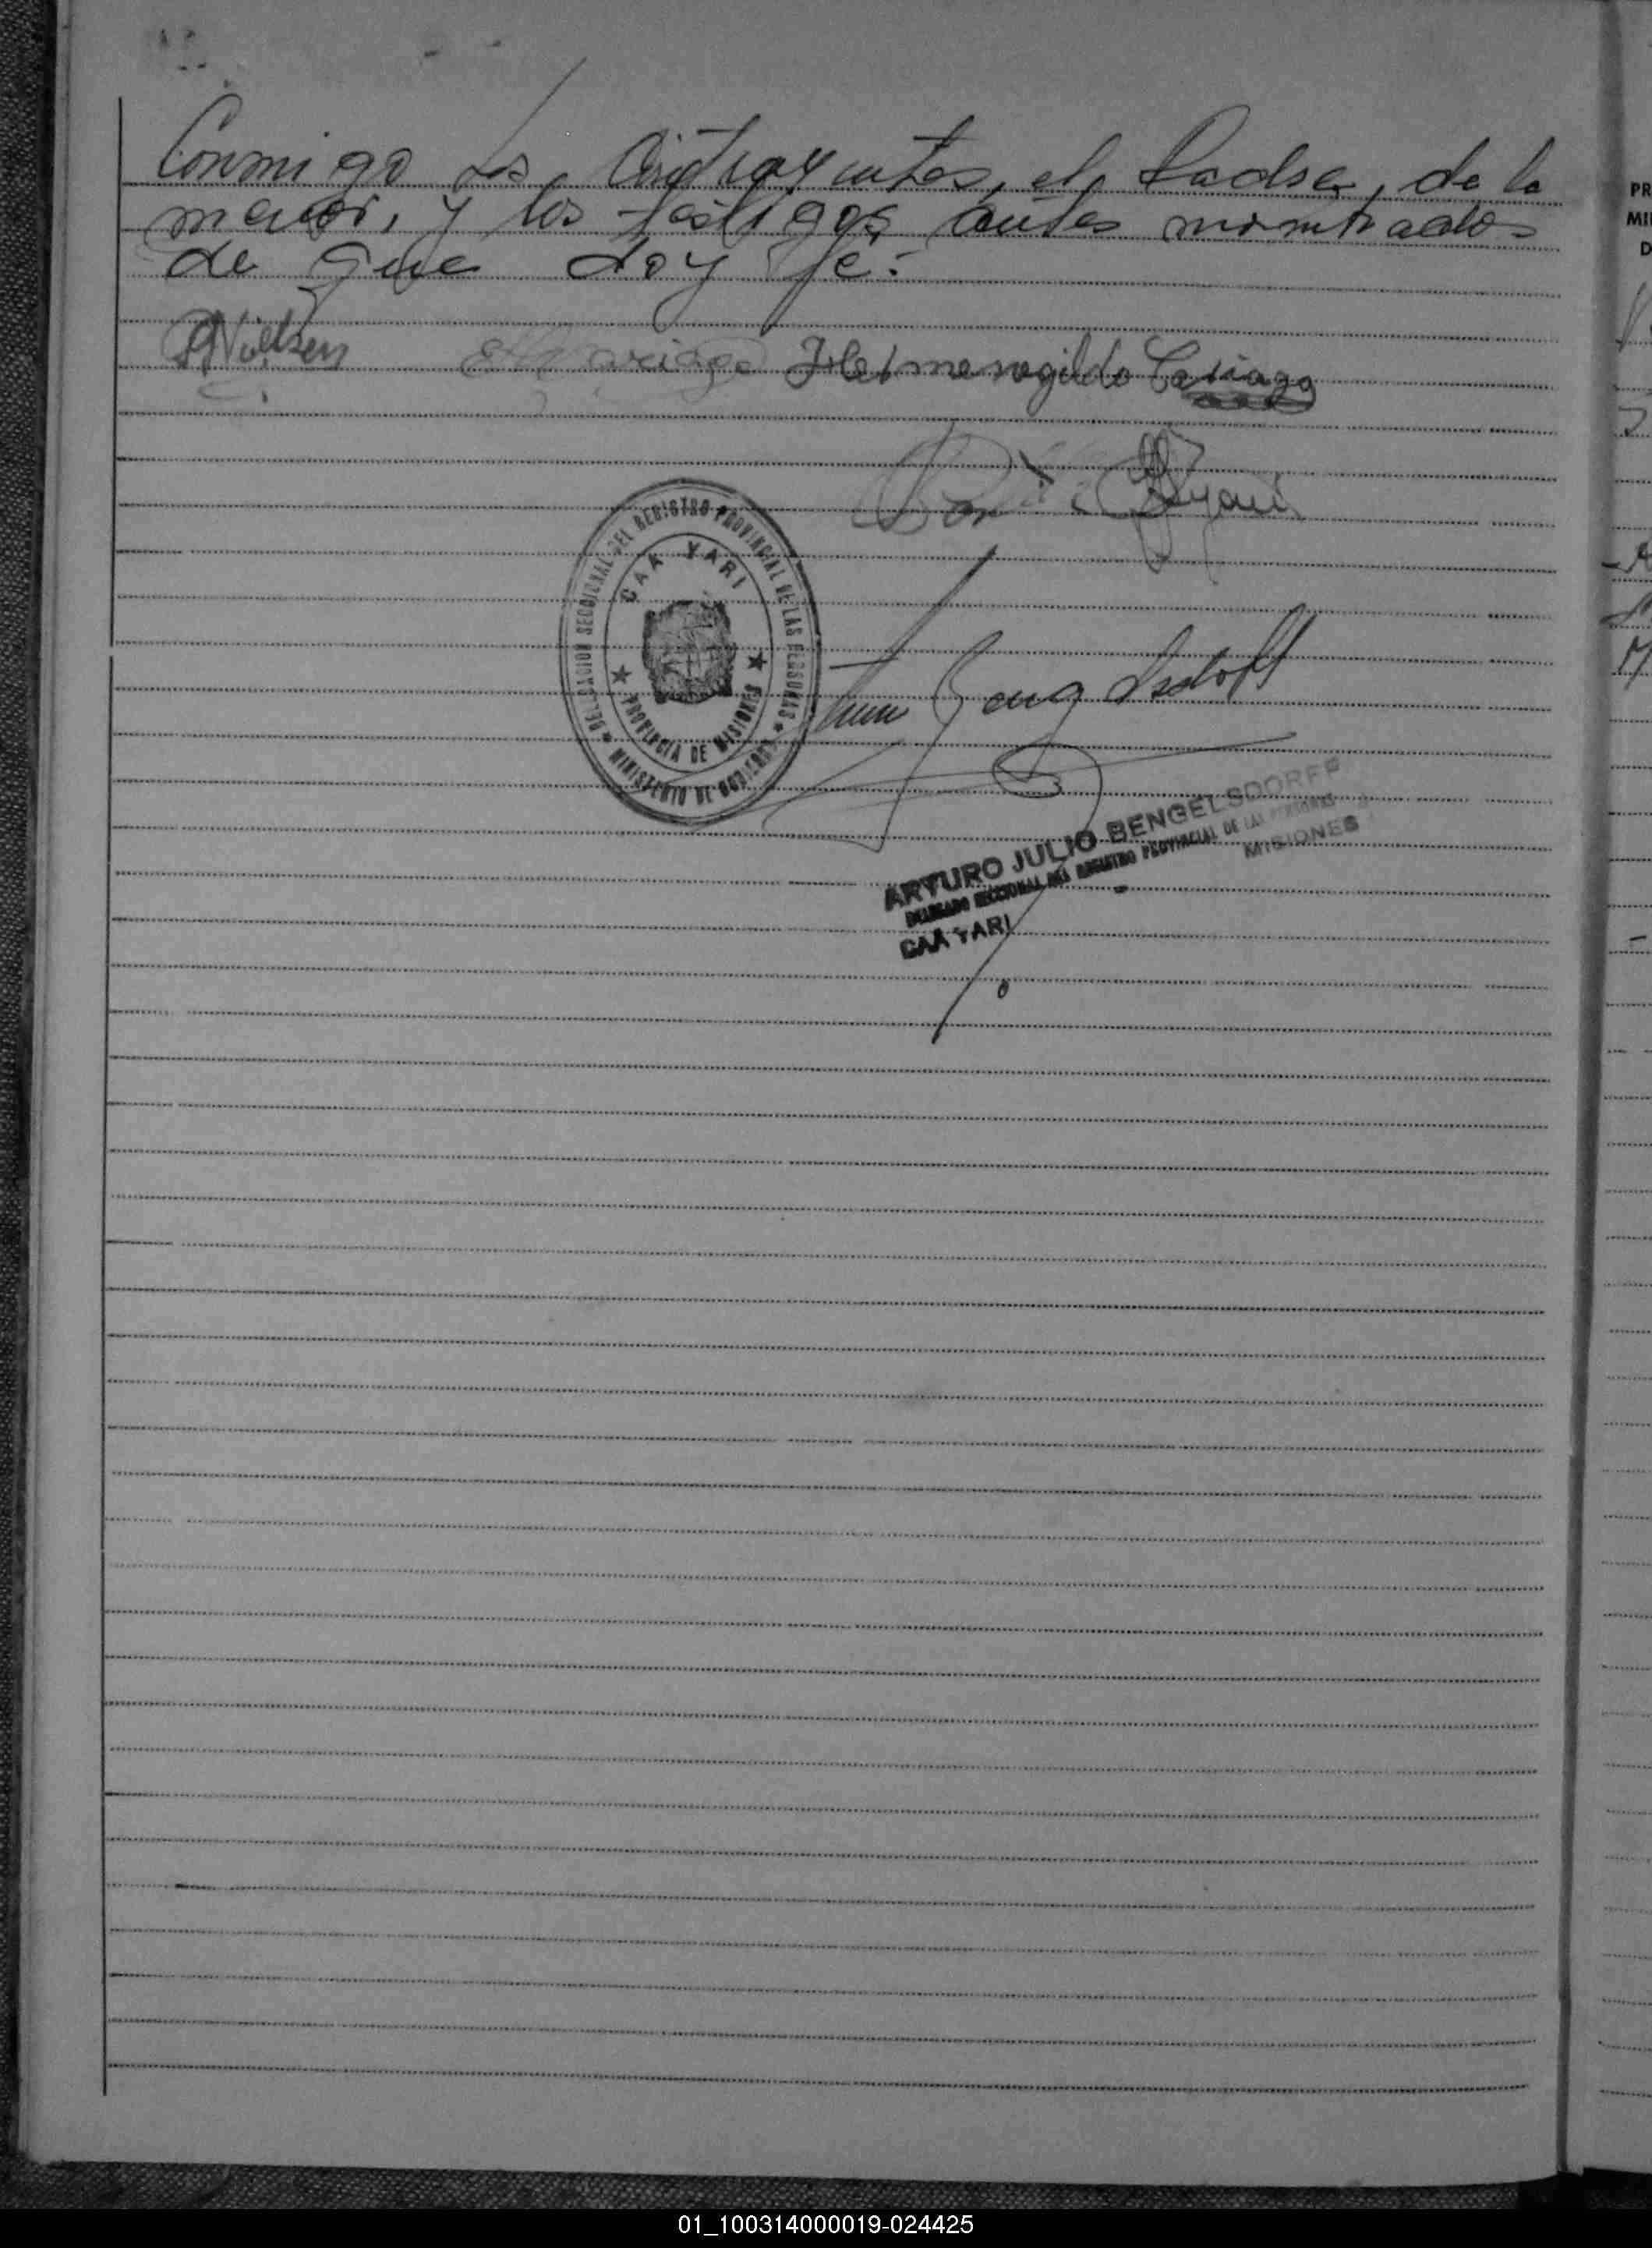 Conmigo los Contrayentes, el Padre, de la
menor, y los testigos antes nombrados
de que doy fe.-
Nielsen
E. Cariaga Hermenegildo Cariaga
DELEGACION SECCIONAL DEL REGISTRO PROVINCIAL DE LAS PERSONAS
★ MINISTERIO DE GOBIERNO ★
CAA YARI
★ PROVINCIA DE MISIONES ★
ARTURO JULIO BENGELSDORFF
DELEGADO SECCIONAL DEL REGISTRO PROVINCIAL DE LAS PERSONAS
CAA YARI MISIONES
PR
MI
D
01_100314000019-024425